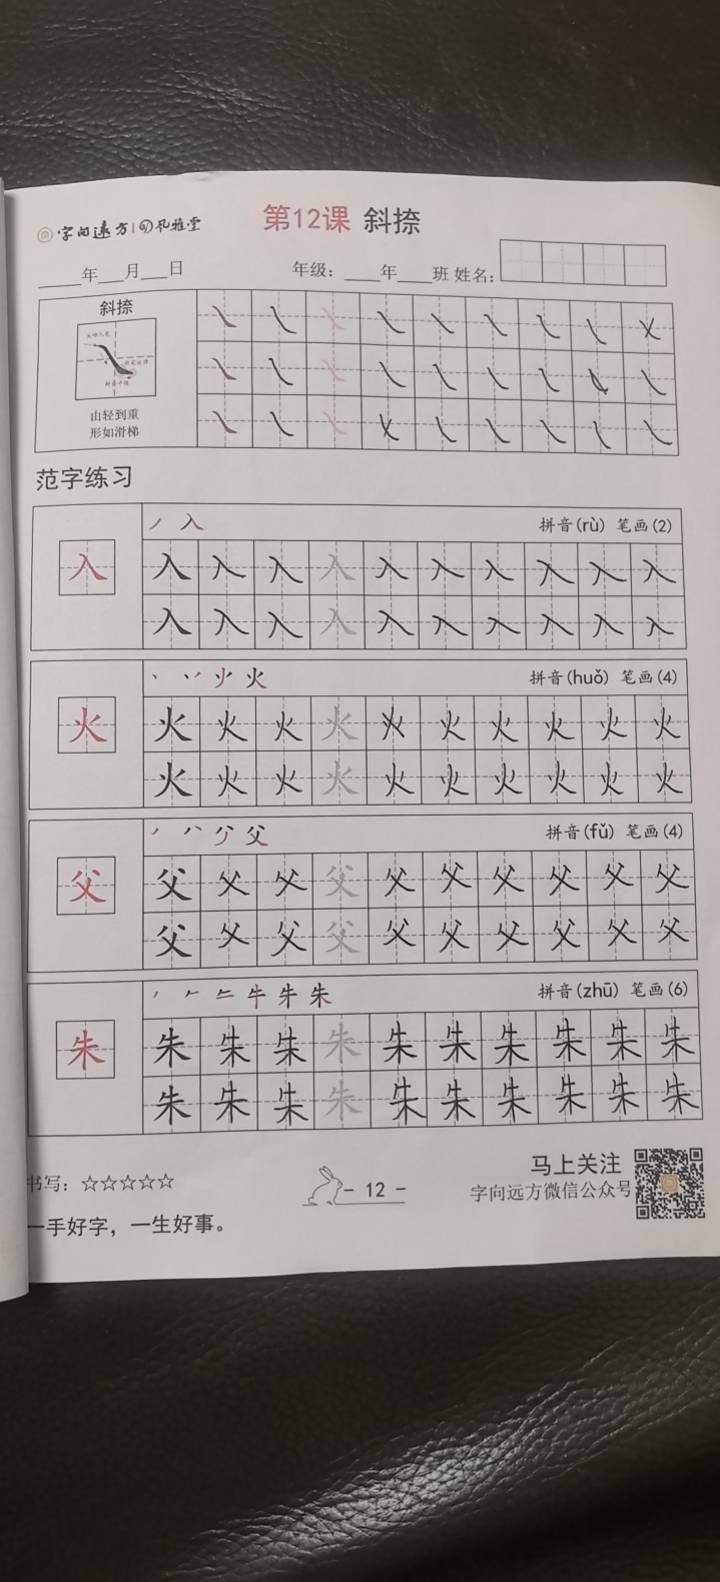 字向远方 风雅堂
第12课 斜捺
____年___月___日 年级：____年____班 姓名：
斜捺
由轻到重
形如滑梯
范字练习
丿 入 拼音(rù) 笔画(2)
入 入 入 入 入 入 入 入 入 入 入
入 入 入 入 入 入 入 入 入 入
火 拼音(huǒ) 笔画(4)
火 火 火 火 火 火 火 火 火 火 火
火 火 火 火 火 火 火 火 火 火
父 拼音(fǔ) 笔画(4)
父 父 父 父 父 父 父 父 父 父 父
父 父 父 父 父 父 父 父 父 父
丿 𠂉 牛 朱 拼音(zhū) 笔画(6)
朱 朱 朱 朱 朱 朱 朱 朱 朱 朱 朱
朱 朱 朱 朱 朱 朱 朱 朱 朱 朱
书写：☆☆☆☆☆
- 12 -
马上关注
字向远方微信公众号
一手好字，一生好事。